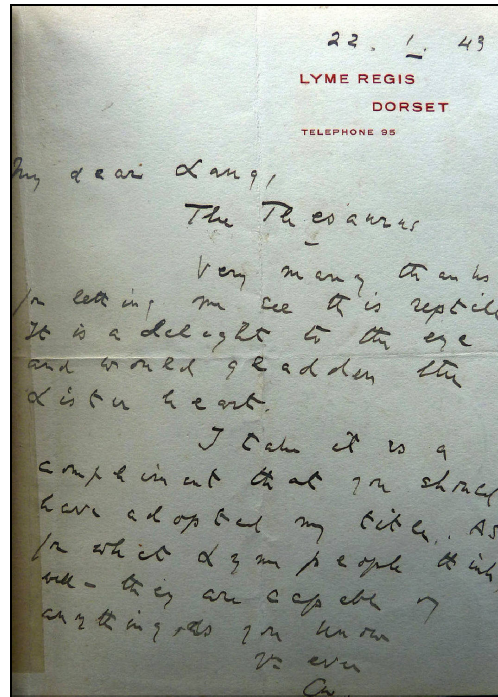 22. 1. 43
LYME REGIS
DORSET
TELEPHONE 95
My dear Lang,
The Thesaurus
Very many thanks
for letting me see this reptile
It is a delight to the eye
and would gladden the
Lister heart.
I take it as a
compliment that you should
have adopted my title. As
for what Lyme people think
well - they are capable of
anything, as you know
Yr ever